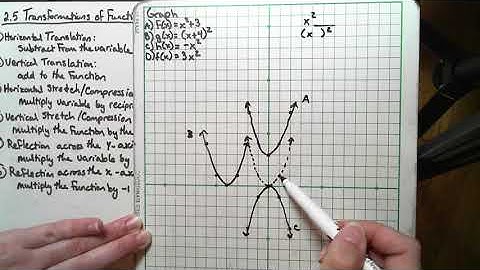 2.5 Transformations of Funct
Horizontal Translation:
Subtract from the variable
Vertical Translation:
add to the Function
Horizontal Stretch/Compression
multiply variable by recipr
Vertical Stretch/Compression
multiply the Function by the
Reflection across the y-axi
multiply the variable by
Reflection across the x-axi
multiply the Function by -1
Graph
A) f(x)=x²+3
B) g(x)=(x+4)²
C) h(x)=-x²
D) f(x)=3x²
x²
(x )²
A
B
C